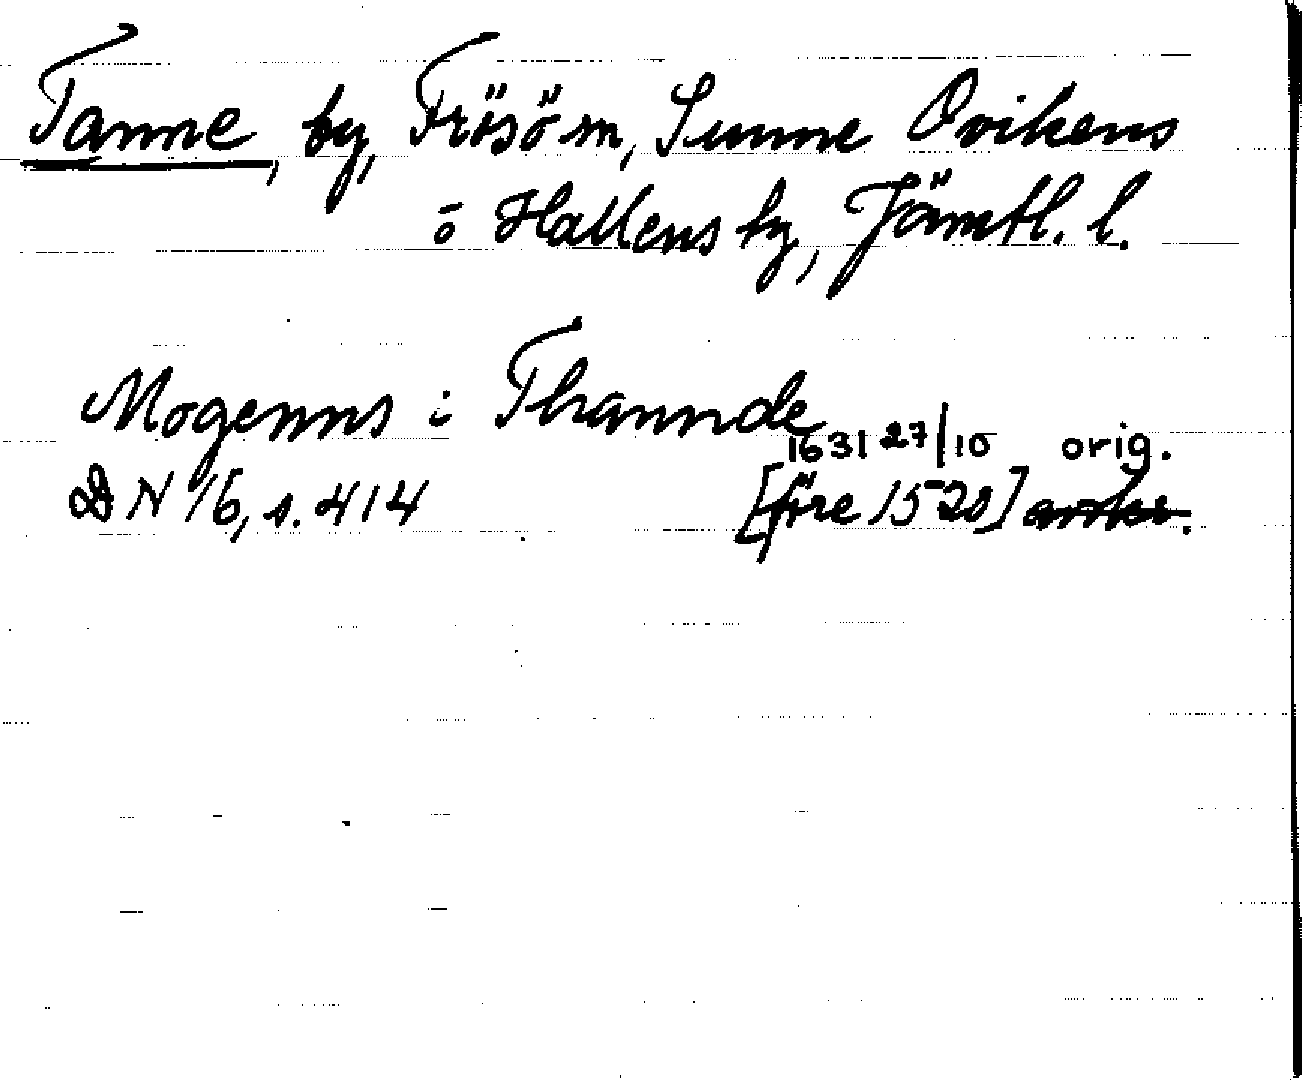 Tanne, by, Frösö sn, Sunne Ovikens
o Hallens tg, Jämtl. l.
Mogenns i Thannde
1631 27/10 orig.
DN 16, s. 414 [före 1520]